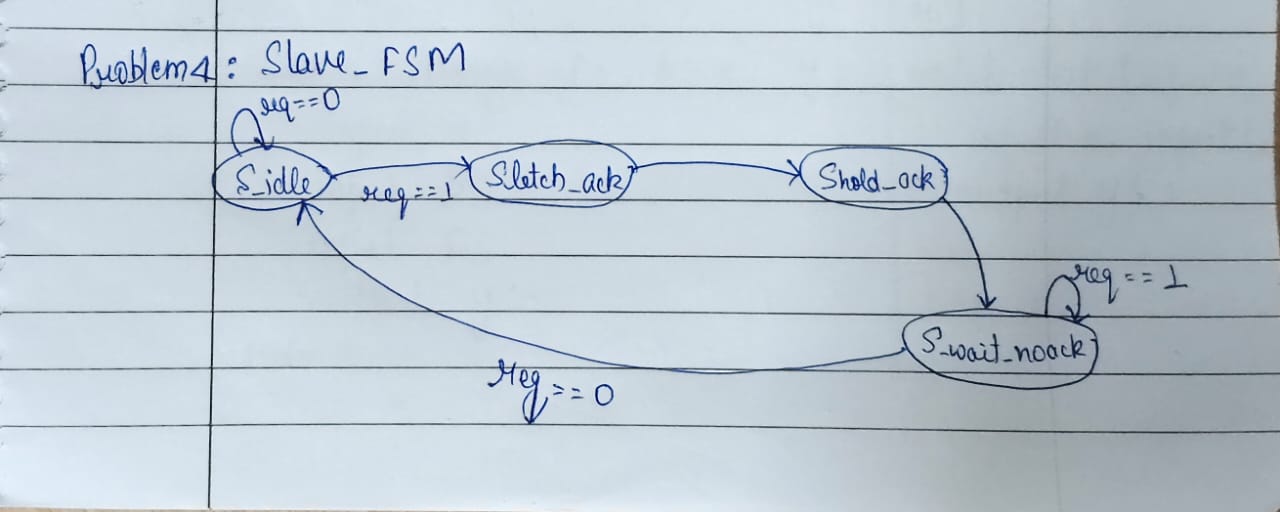 Problem 4: Slave_FSM
req==0
S_idle
req==1
S_latch_ack
S_hold_ack
req==1
S_wait_noack
req==0